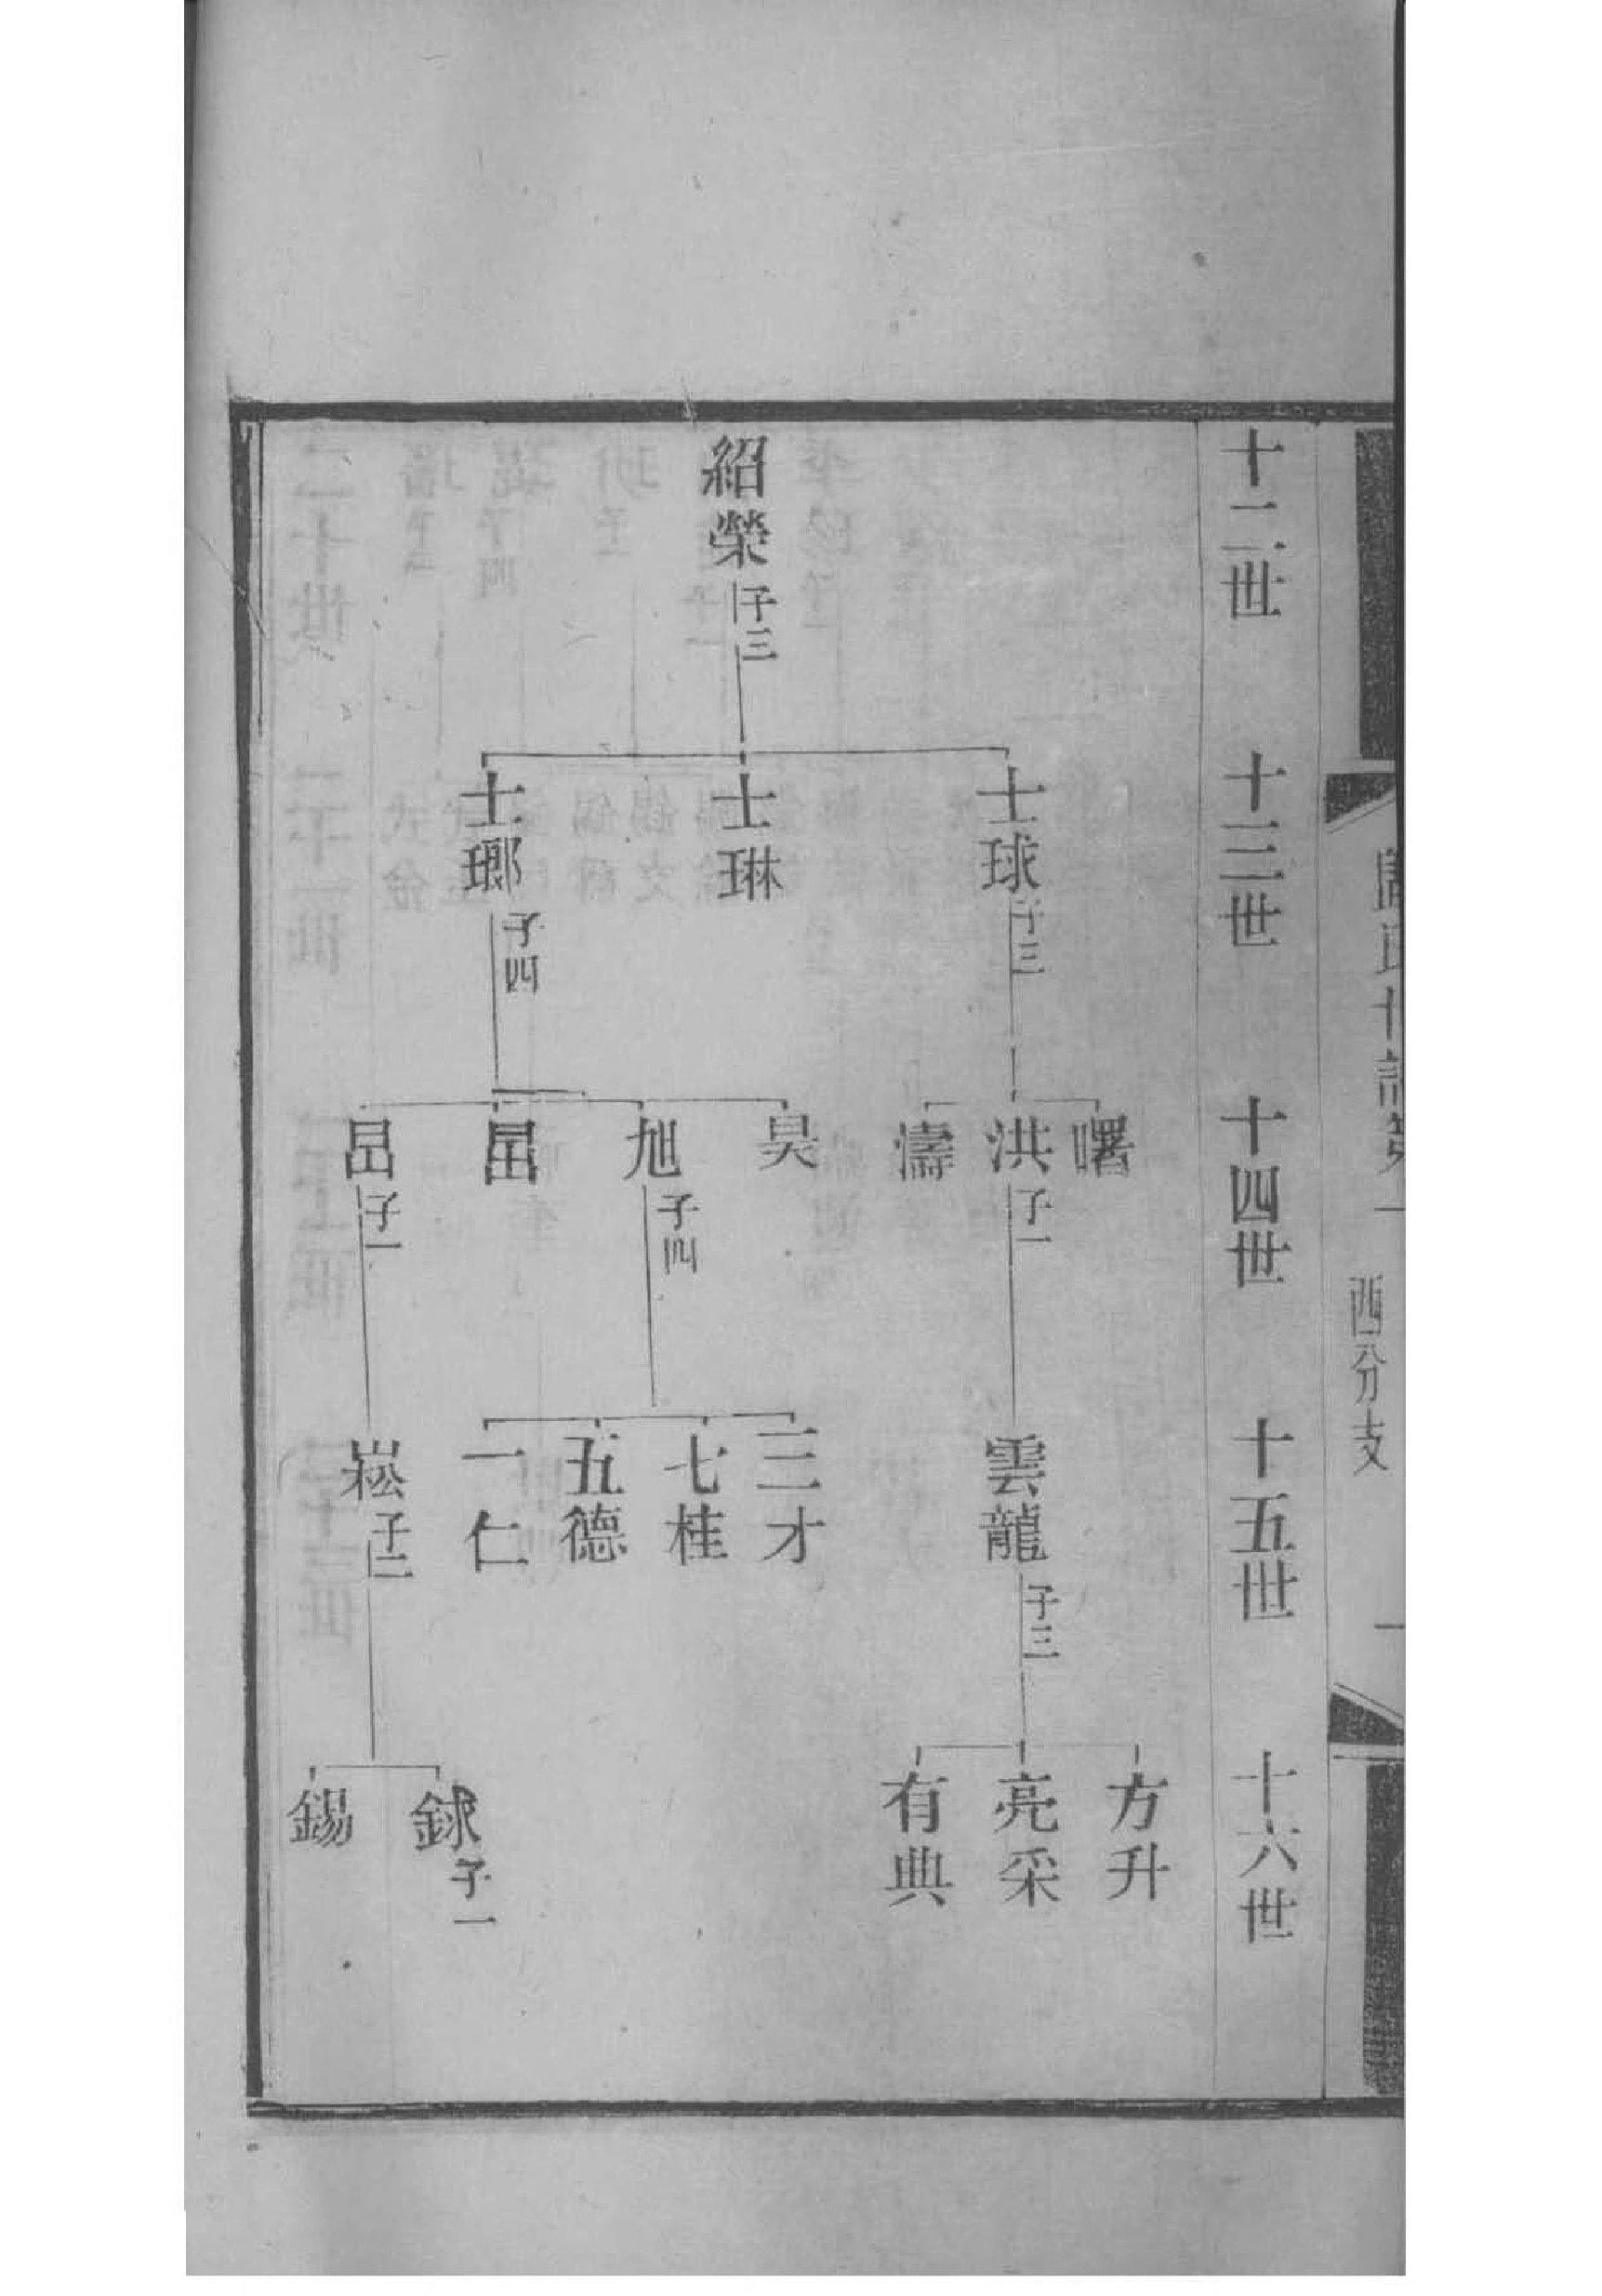 西分支
十二世
十三世
十四世
十五世
十六世
紹榮 子三
士球 子三
士琳
士瑯 子四
曙
洪 子一
濤
昊
旭 子四
昌 子一
雲龍 子三
三才
七桂
五德
一仁
崧 子二
方升
亮采
有典
銶 子一
錫